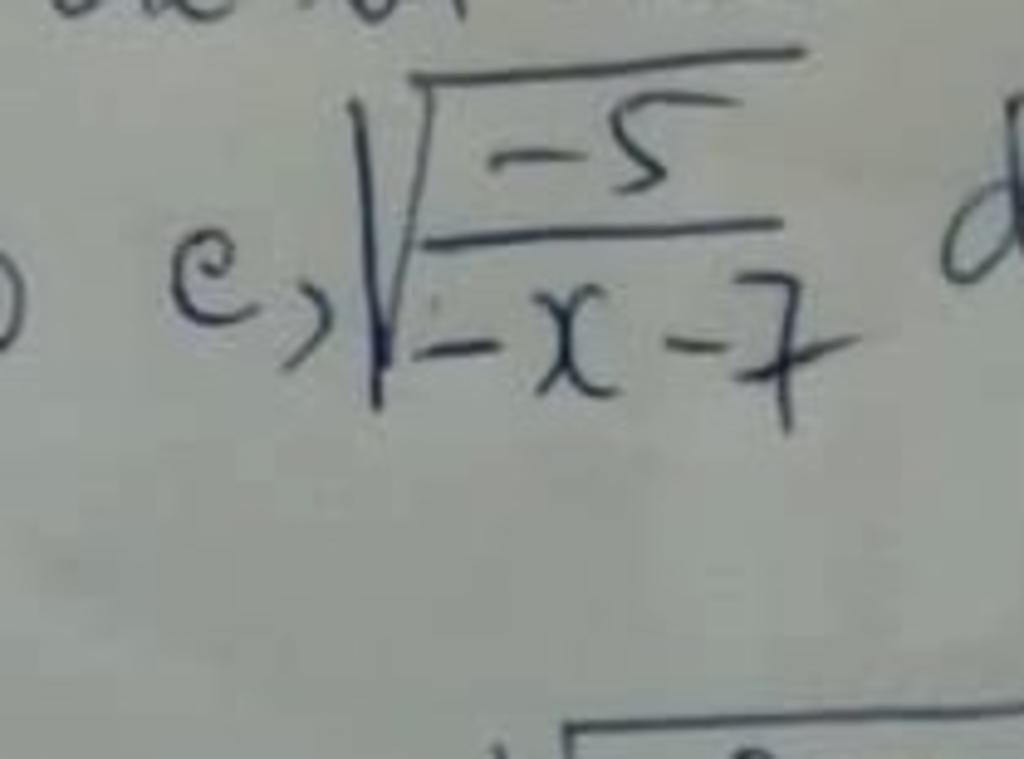 c, √(-5 / -x-7) d